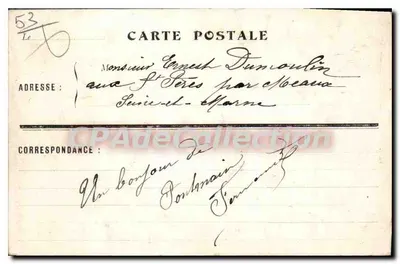 53
CARTE POSTALE
Monsieur Ernest Dumoulin
ADRESSE : aux St Pères par Meaux
Seine-et-Marne
CPAdeCollection
CORRESPONDANCE :
Un bonjour de
Pontmain